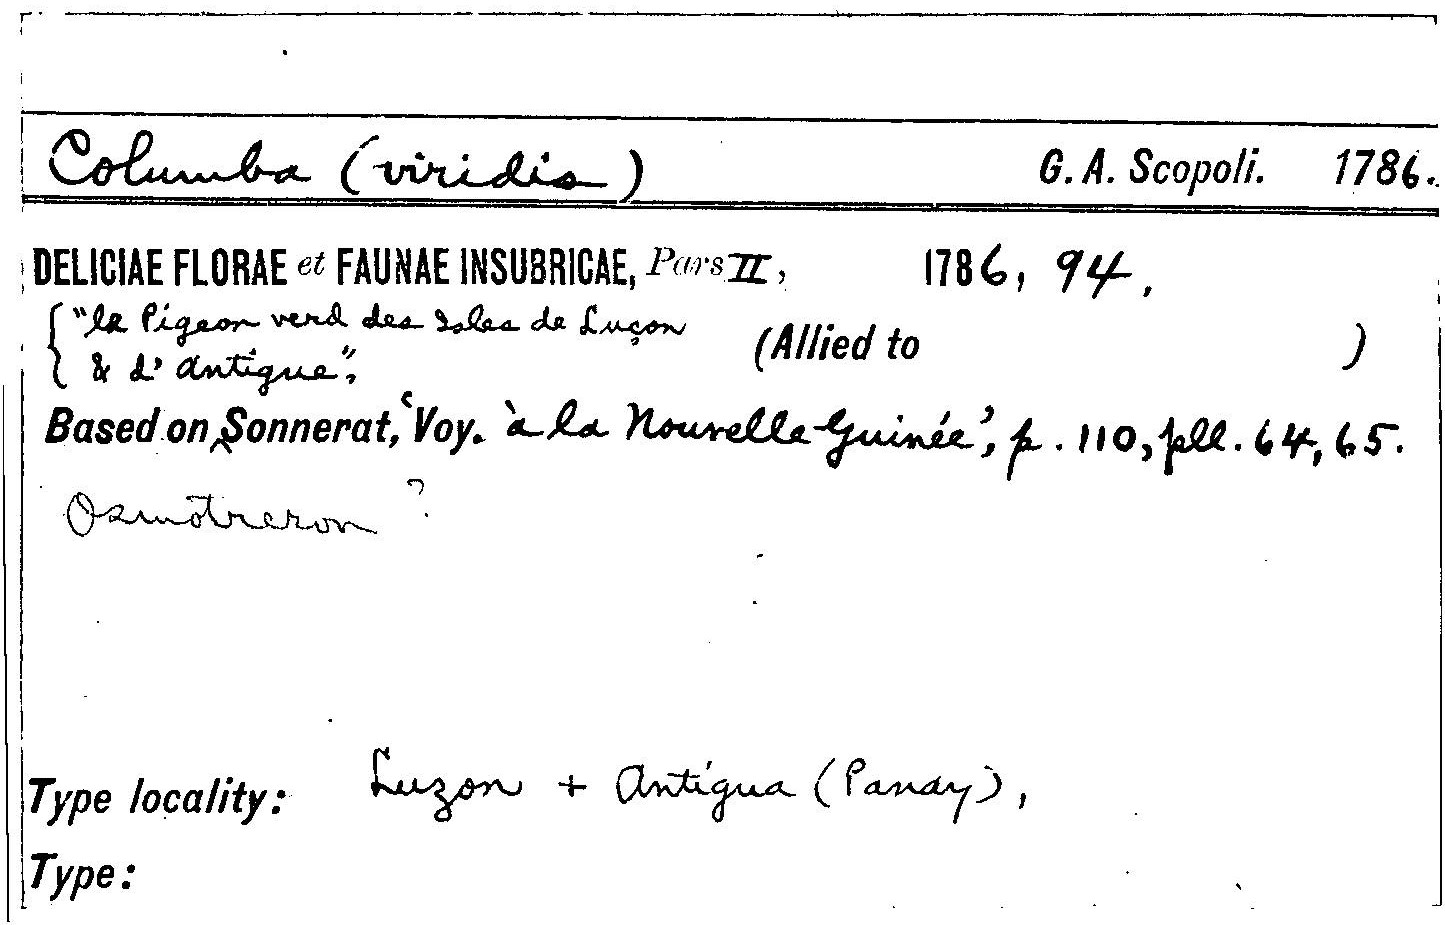 Columba (viridis) G. A. Scopoli. 1786.
DELICIAE FLORAE et FAUNAE INSUBRICAE, Pars II, 1786, 94.
"le Pigeon verd des Isles de Luçon
& d' Antigue", (Allied to )
Based on Sonnerat, 'Voy. à la Nouvelle Guinée', p. 110, pll. 64, 65.
Osmotreron ?
Type locality: Luzon + Antigua (Panay),
Type: